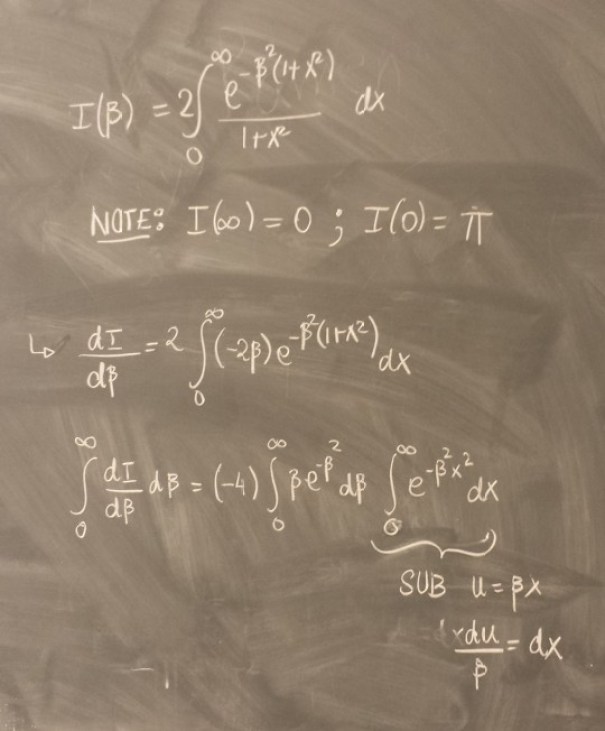 I(β) = 2∫₀^∞ e^{-β²(1+x²)} / (1+x²) dx
NOTE: I(∞) = 0 ; I(0) = π
↳ dI/dβ = 2 ∫₀^∞ (-2β) e^{-β²(1+x²)} dx
∫₀^∞ dI/dβ dβ = (-4) ∫₀^∞ βe^{-β²} dβ ∫₀^∞ e^{-β²x²} dx
SUB u = βx
du/β = dx